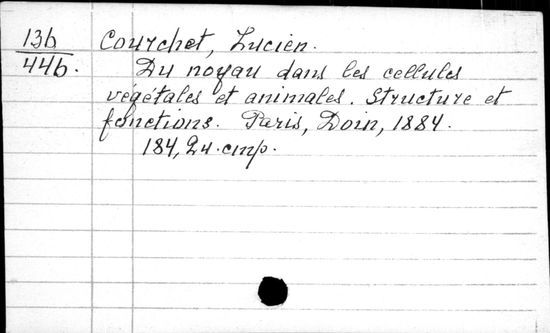 13b
44b.
Courchet, Lucien.
Du noyau dans les cellules
végétales et animales. Structure et
fonctions. Paris, Doin, 1884.
184, 2 u. cmp.